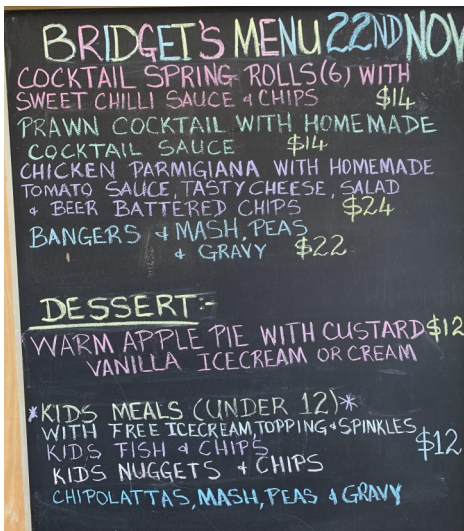 BRIDGET'S MENU 22ND NOV
COCKTAIL SPRING ROLLS(6) WITH
SWEET CHILLI SAUCE & CHIPS $14
PRAWN COCKTAIL WITH HOMEMADE
COCKTAIL SAUCE $14
CHICKEN PARMIGIANA WITH HOMEMADE
TOMATO SAUCE, TASTY CHEESE, SALAD
& BEER BATTERED CHIPS $24
BANGERS & MASH, PEAS
& GRAVY $22
DESSERT:-
WARM APPLE PIE WITH CUSTARD $12
VANILLA ICECREAM OR CREAM
*KIDS MEALS (UNDER 12)*
WITH FREE ICECREAM TOPPING & SPINKLES
KIDS FISH & CHIPS $12
KIDS NUGGETS & CHIPS
CHIPOLATTAS, MASH, PEAS & GRAVY